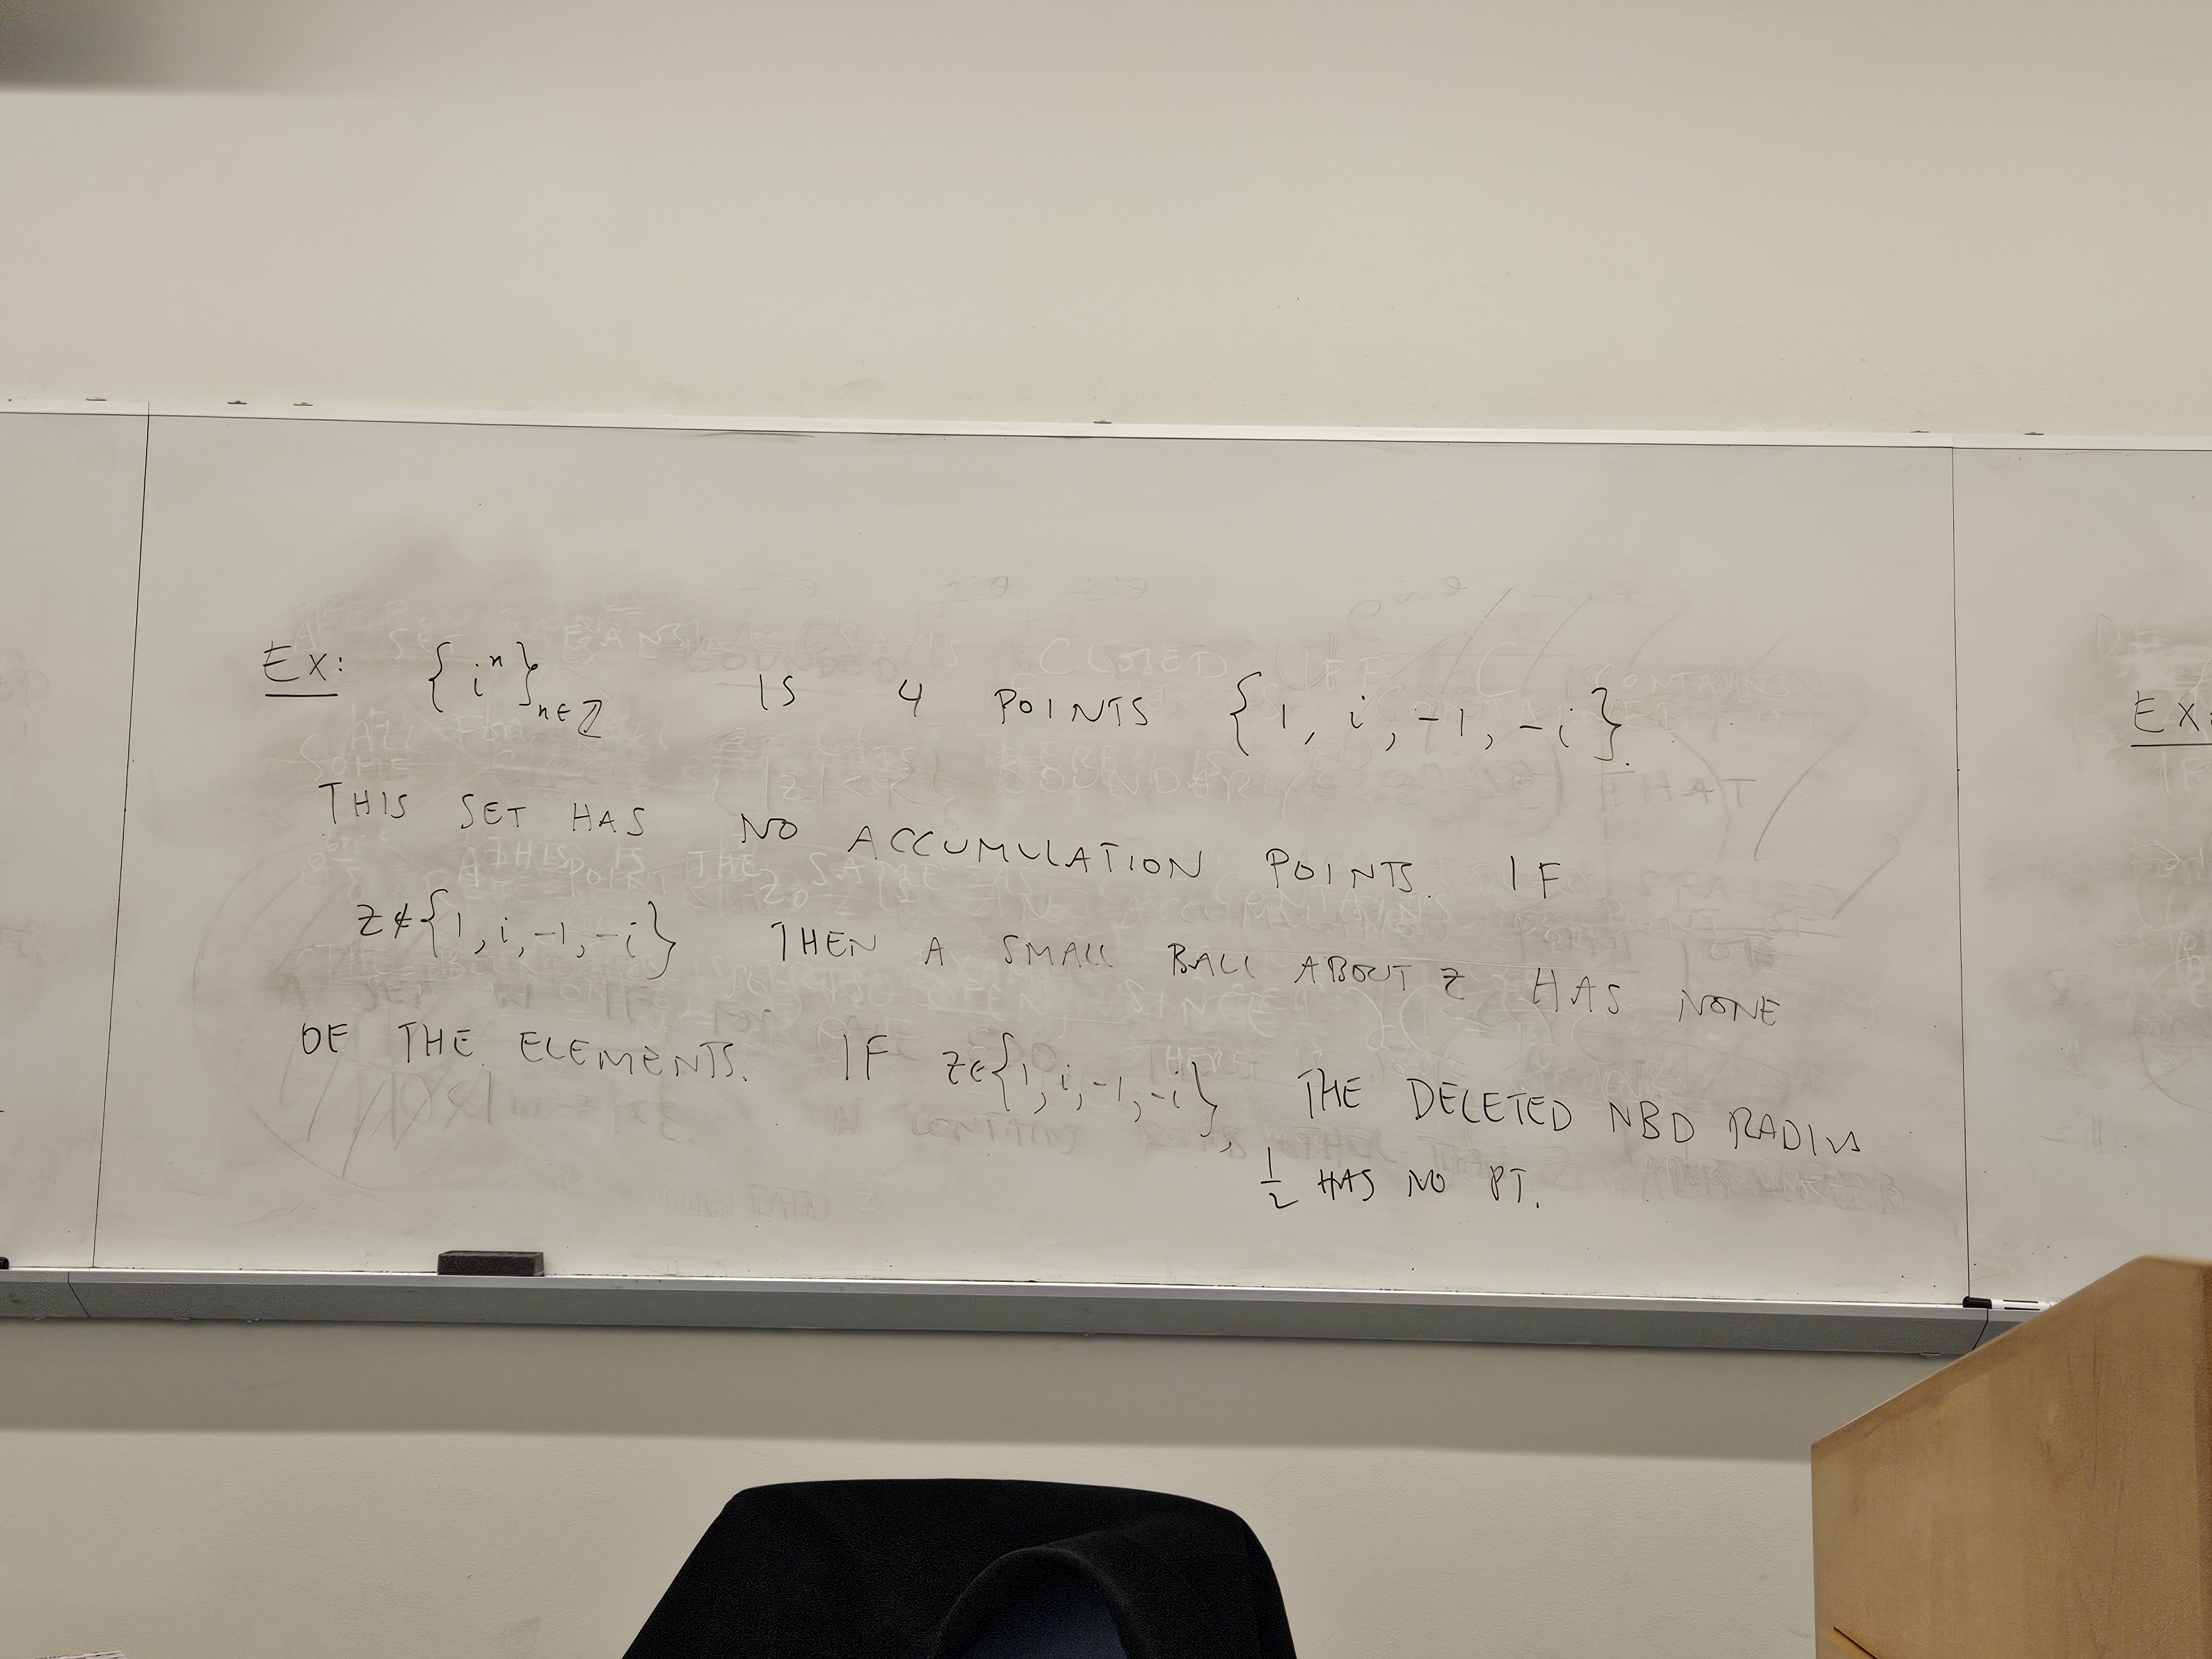 Ex: {iⁿ}ₙ∈ℤ IS 4 POINTS {1, i, -1, -i}.
THIS SET HAS NO ACCUMULATION POINTS. IF
z∉{1, i, -1, -i} THEN A SMALL BALL ABOUT z HAS NONE
OF THE ELEMENTS. IF z∈{1, i, -1, -i}, THE DELETED NBD RADIUS
1/2 HAS NO PT.
EX: